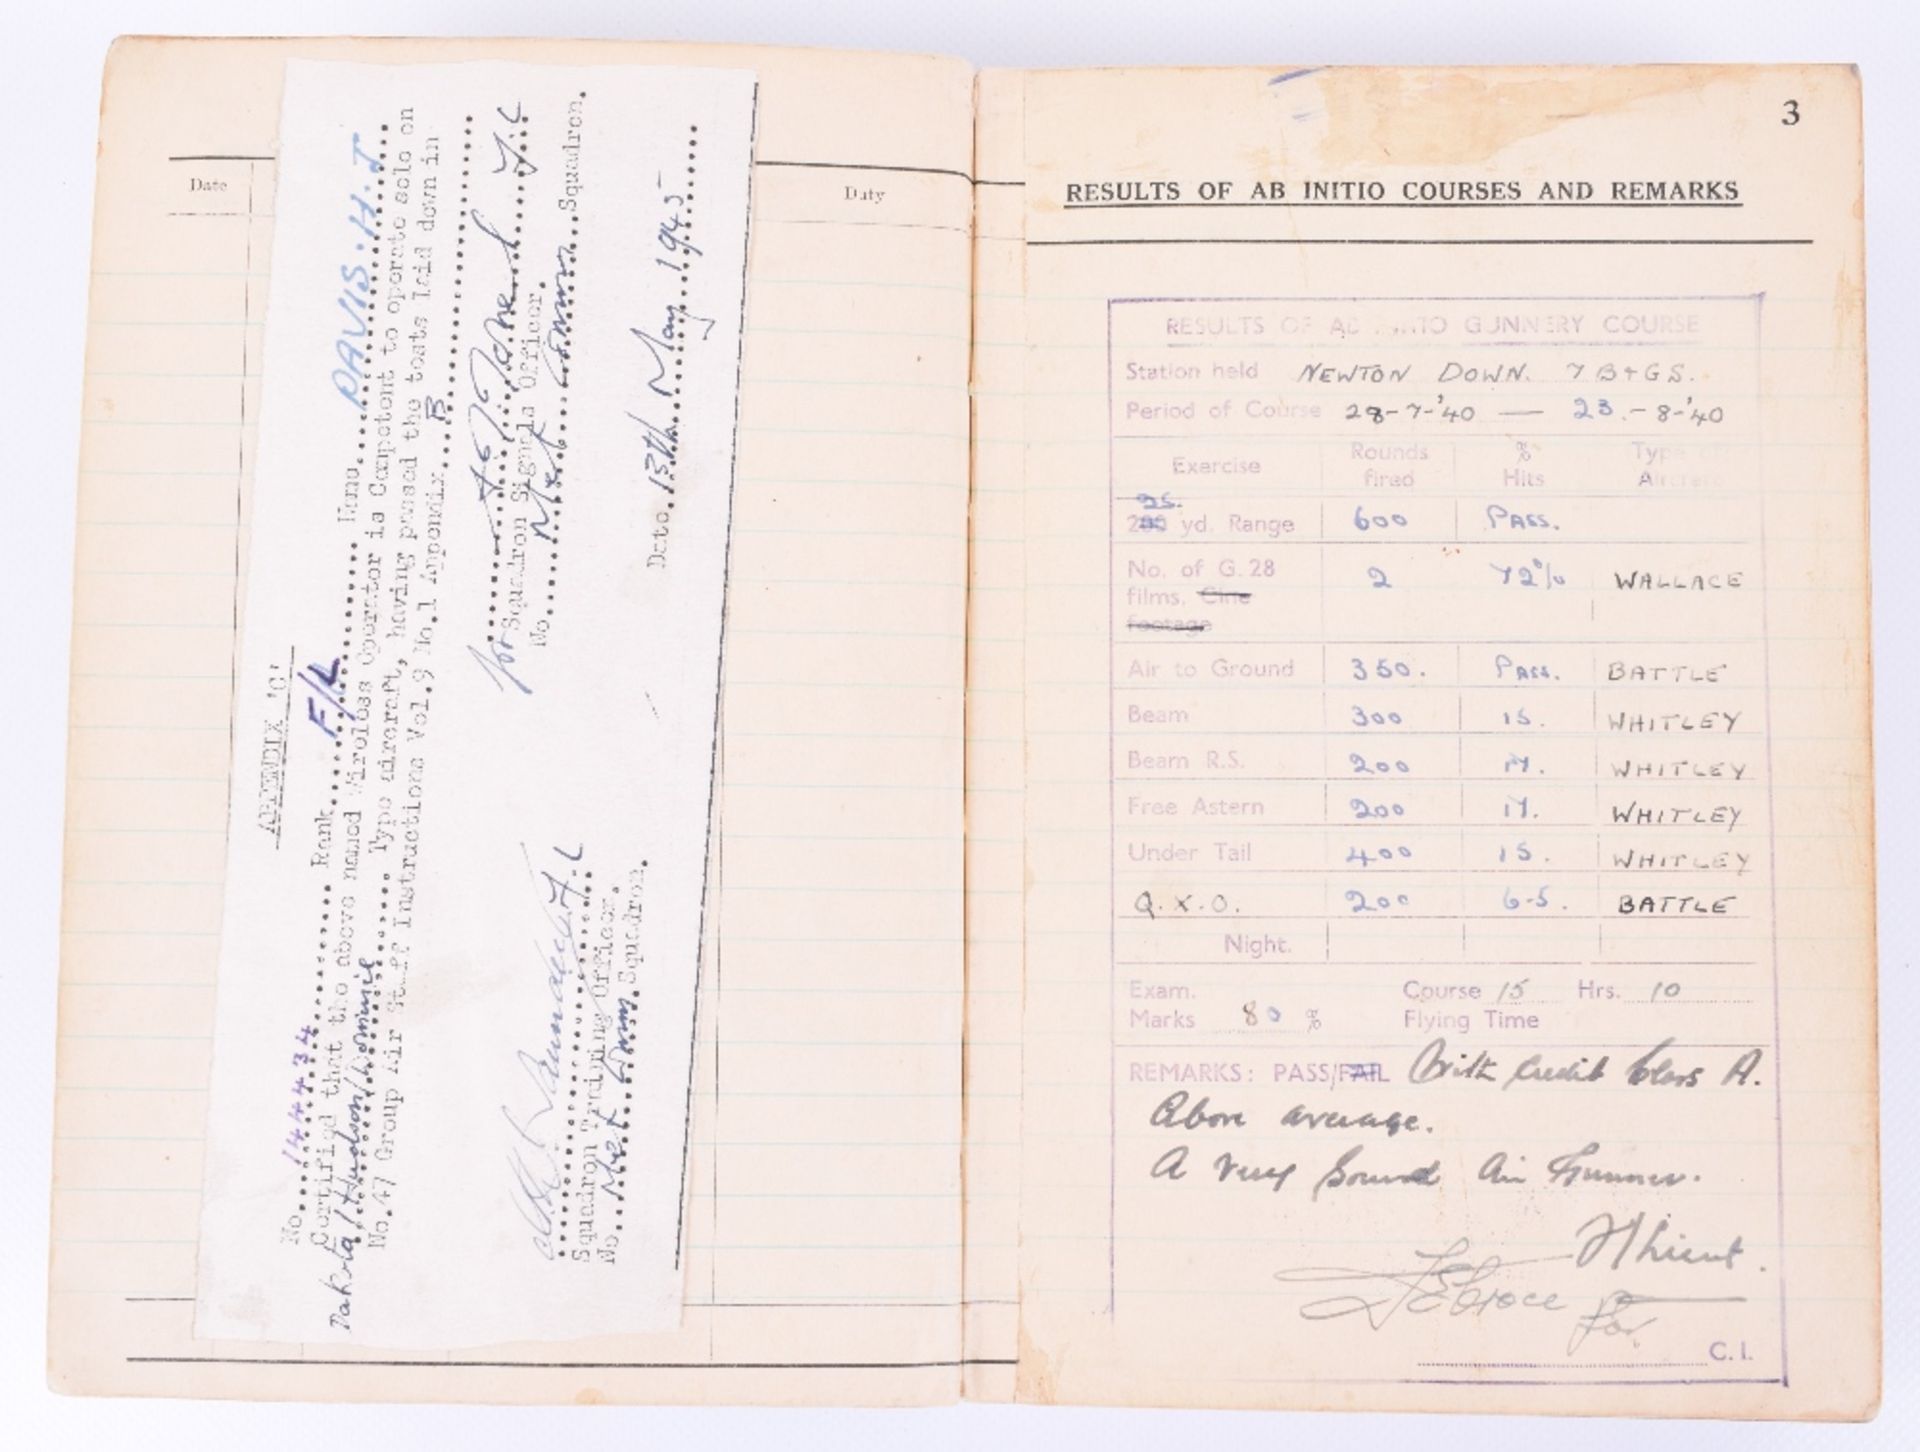 Date
Duty
APPENDIX 'C'
No. 144434 Rank F/L Name DAVIS. H. J
Certified that the above named Wireless Operator is Competent to operate solo on
Dakota/Hudson/Dominie Type aircraft, having passed the tests laid down in
No.47 Group Air Staff Instructions Vol.9 No.1 Appendix B
for F.L
Squadron Signals Officer.
No. Met Comm Squadron.
F.L
Squadron Training Officer.
No. Met Comm Squadron.
Date. 15th May 1945
3
RESULTS OF AB INITIO COURSES AND REMARKS
RESULTS OF AB INITIO GUNNERY COURSE
Station held NEWTON DOWN. 7 B+GS.
Period of Course 28-7-'40 — 23.-8-'40
Exercise Rounds fired % Hits Type of Aircraft
25.
200 yd. Range 600 PASS.
No. of G.28 2 72% WALLACE
films. Cine
footage
Air to Ground 350. PASS. BATTLE
Beam 300 15. WHITLEY
Beam R.S. 200 WHITLEY
Free Astern 200 17. WHITLEY
Under Tail 400 15. WHITLEY
Q.X.O. 200 6-5. BATTLE
Night.
Exam. Course 15 Hrs. 10
Marks 80 % Flying Time
REMARKS: PASS/FAIL With Credit Class A.
Above average.
A Very Sound Air Gunner.
for
C.I.